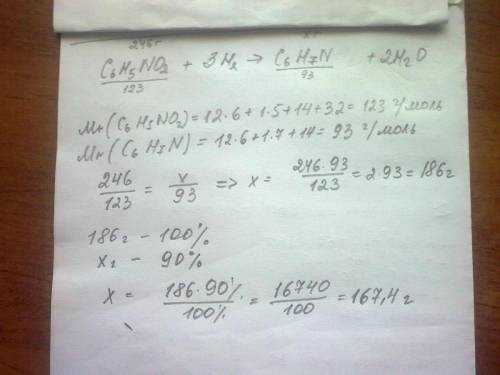 246г xг
C6H5NO2 + 3H2 → C6H7N + 2H2O
123 93
Mr(C6H5NO2) = 12·6+1·5+14+32 = 123 г/моль
Mr(C6H7N) = 12·6+1·7+14 = 93 г/моль
246/123 = x/93 => x = 246·93/123 = 2·93 = 186г
186г – 100%
xг – 90%
x = 186·90%/100% = 16740/100 = 167,4 г